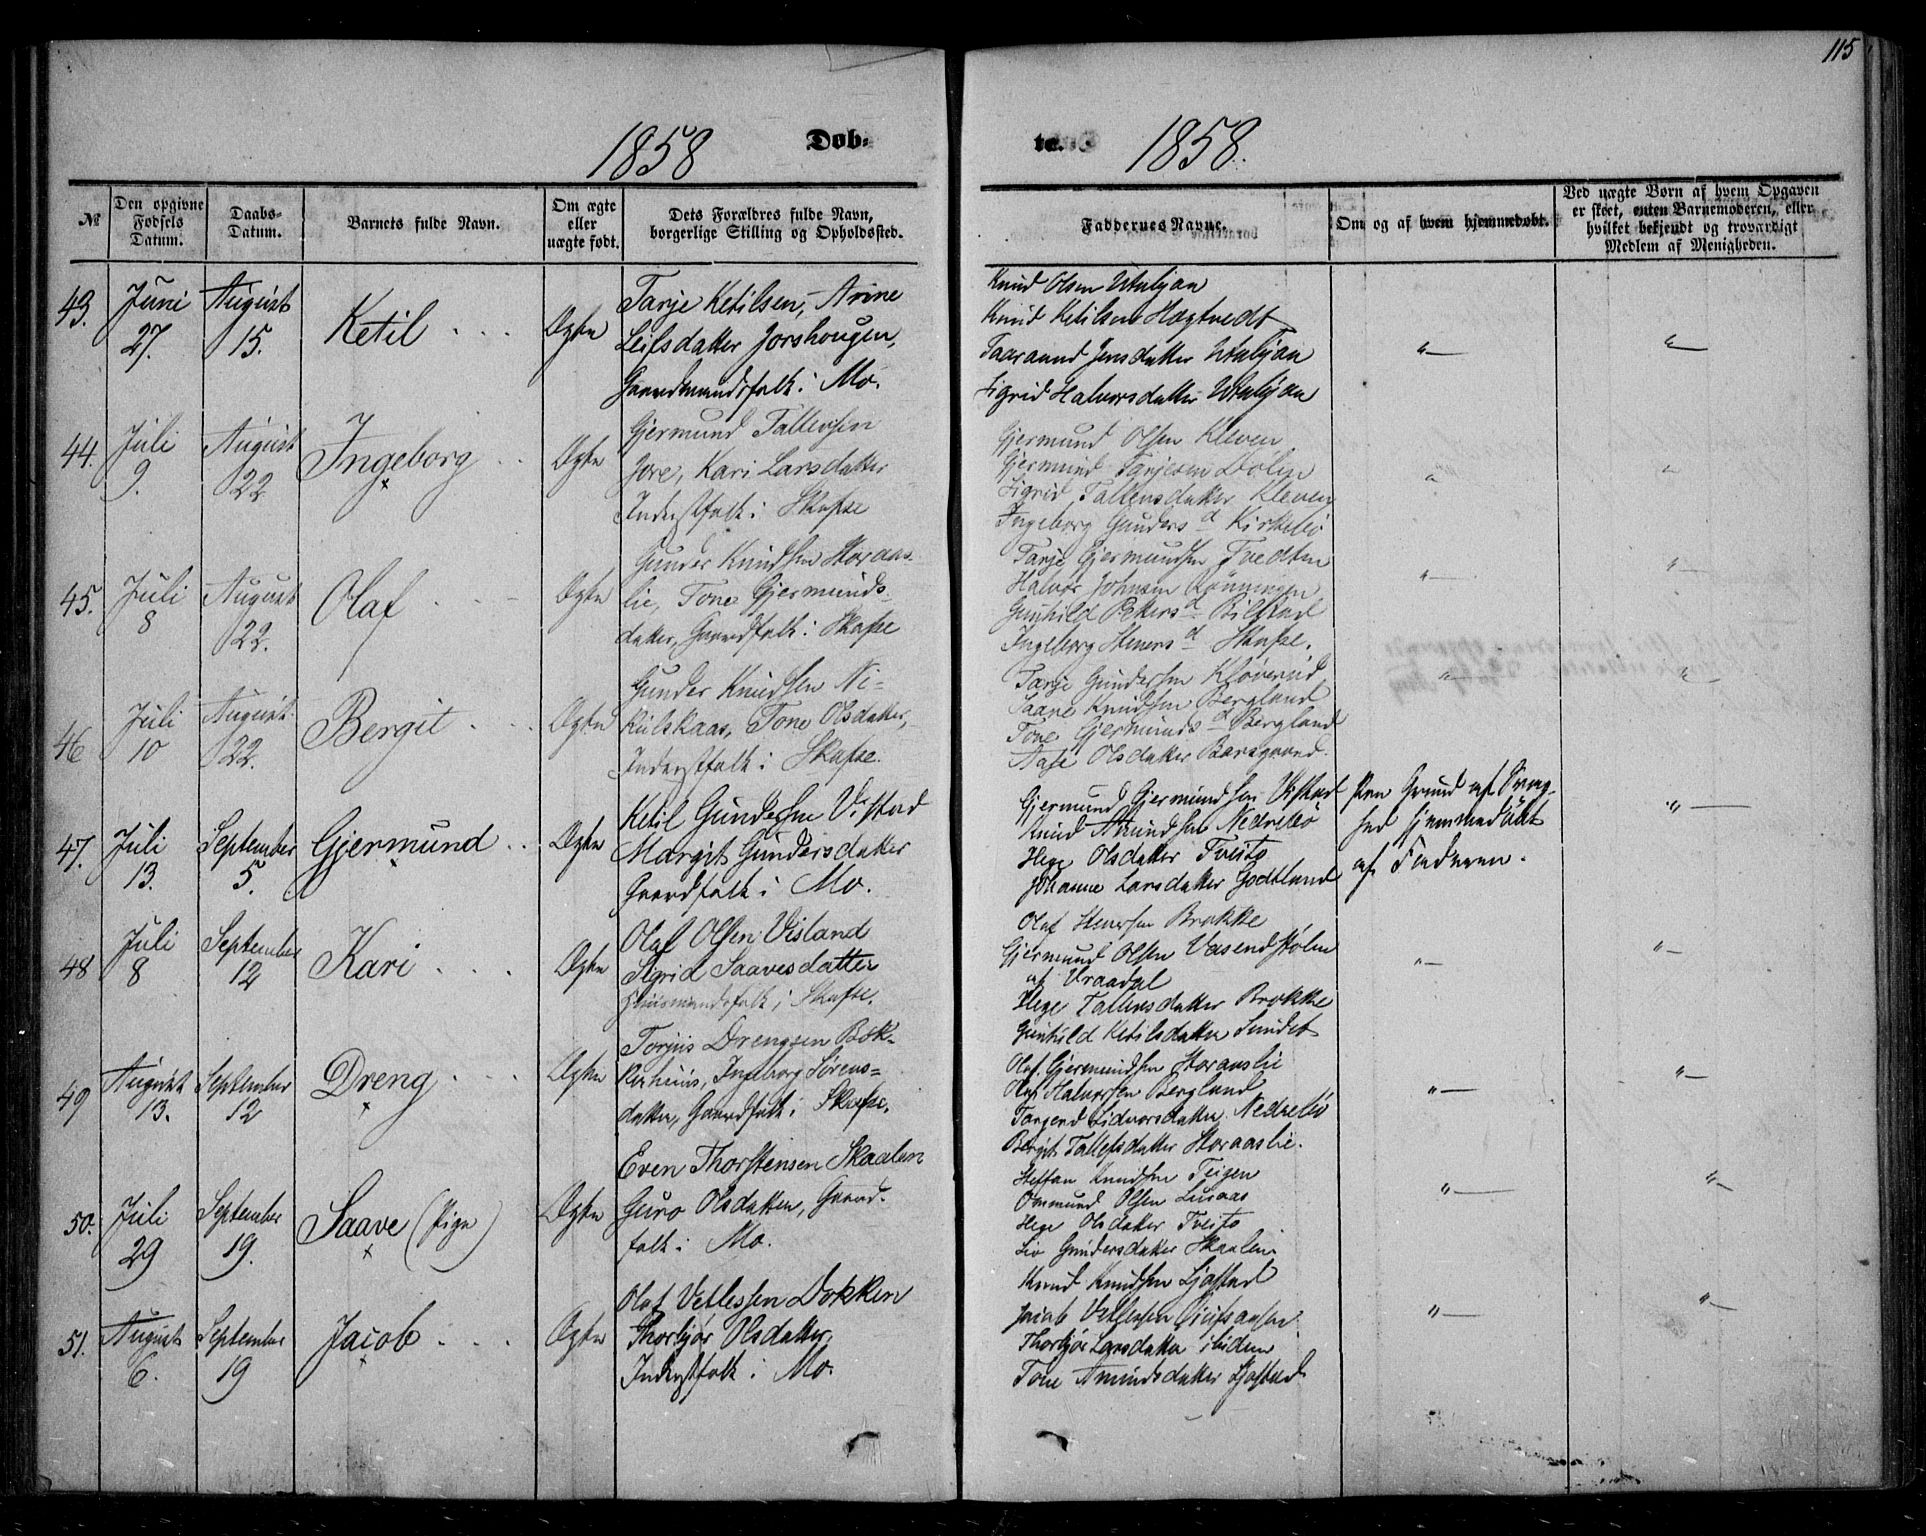 115
1858 Døb-
te. 1858.
№
Den opgivne Fødsels Datum.
Daabs-Datum.
Barnets fulde Navn.
Om ægte eller uægte født.
Dets Forældres fulde Navn, borgerlige Stilling og Opholdssted.
Faddernes Navne.
Om og af hvem hjemmedøbt.
Ved uægte Børn af hvem Opgaven er skeet, enten Barnemoderen, eller hvilket bekjendt og troværdigt Medlem af Menigheden.
43. Juni 27. August 15. Ketil Ægte
Tarje Ketilsen, Anne
Leifsdatter Jorshougen,
Gaardmandsfolk i Mo.
Knud Olsen Utabjaa
Knud Ketilsen Hagtvedt
Taaraand Jensdatter Utabjaa
Sigrid Halvorsdatter Utabjaa
"— "—
44. Juli 9. August 22 Ingeborg Ægte
Gjermund Tallevsen
Jore, Kari Larsdatter
Inderstfolk i Skafse
Gjermund Olsen Kleven
Gjermund Tarjesen Dolen
Sigrid Tallevsdatter Kleven
Ingeborg Gunders d Kirkebø
45. Juli 8 August 22. Olaf Ægte
Gunder Knudsen Storaas-
lie, Tone Gjermunds-
datter, Gaardfolk i Skafse
Tarje Gjermundsen Tvedten
Halvor Johnsen Rønningen
Gunhild Peters d Bilstad
Ingeborg Stevers d Skafse.
"— "—
46 Juli 10 August 22. Bergit Ægte
Gunder Knudsen Ni-
kulskaas, Tone Olsdatter,
Inderstfolk i Skafse.
Tarje Gundersen Kløverud
Saave Knudsen Bergland
Tone Gjermunds d Bergland
Aase Olsdatter Barsgaard.
"— "—
47. Juli 13. September 5. Gjermund Ægte
Ketil Gundersen Vistad
Margit Gundersdatter
Gaardfolk i Mo.
Gjermund Gjermundsen Vistad
Knud Amundsen Nedrebø
Hege Olsdatter Tveito
Johanne Larsdatter Godtland
Paa Grund af Svag-
hed hjemmedøbt
af Faderen.
"—
48 Juli 8 September 12 Kari Ægte
Olaf Olsen Visland
Sigrid Saavesdatter
Huusmandsfolk i Skafse.
Olaf Steversen Brokke
Gjermund Olsen Vasendstølen
af Vraadal
Hege Tallevsdatter Brokke
Gunhild Ketilsdatter Sundet
"— "—
49 August 13. September 12 Dreng Ægte
Torjus Drengsen Bok-
kerhuus, Ingeborg Sørens-
datter, Gaardfolk i Skafse.
Olaf Gjermundsen Storaaslie
Olaf Halvorsen Bergland
Targerd Sidvorsdatter Nedrebø
Bergit Tallefsdatter Storaaslie.
"— "—
50. Juli 29 September 19. Saave (Pige) Ægte
Even Thorstensen Skaalen
Guro Olsdatter, Gaard-
folk i Mo.
Steffan Knudsen Teigen
Ommund Olsen Lusaas
Hege Olsdatter Tveito
Liv Gundersdatter Skaalen
"— "—
51. August 6. September 19 Jacob Ægte
Olaf Vetlessen Dokken
Thorbjør Olsdatter,
Inderstfolk i Mo.
Knud Knudsen Ljostad
Jacob Vetlesen
Thorbjør Larsdatter ibidem
Tone Amundsdatter Ljostad
"— "—